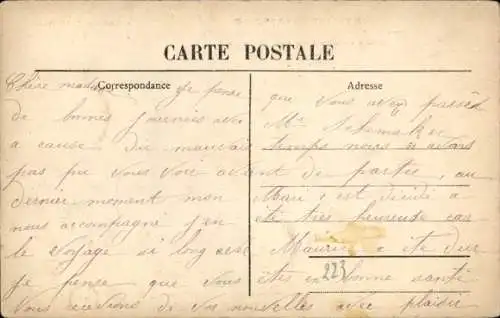 CARTE POSTALE
Correspondance
Adresse
Chère madame Je pense
de bonnes journées avec
a cause du mauvais
pas pu vous voir
dernier moment mon
nous accompagné j'en
le voyage si long avec
je pense que vous
vous recevions de vos nouvelles avec plaisir
que vous avez passés
Mr
temps nous n avons
avant de partir, au
Mari s est décidé a
été très heureuse car
Maurice a été dur
êtes en bonne santé
223